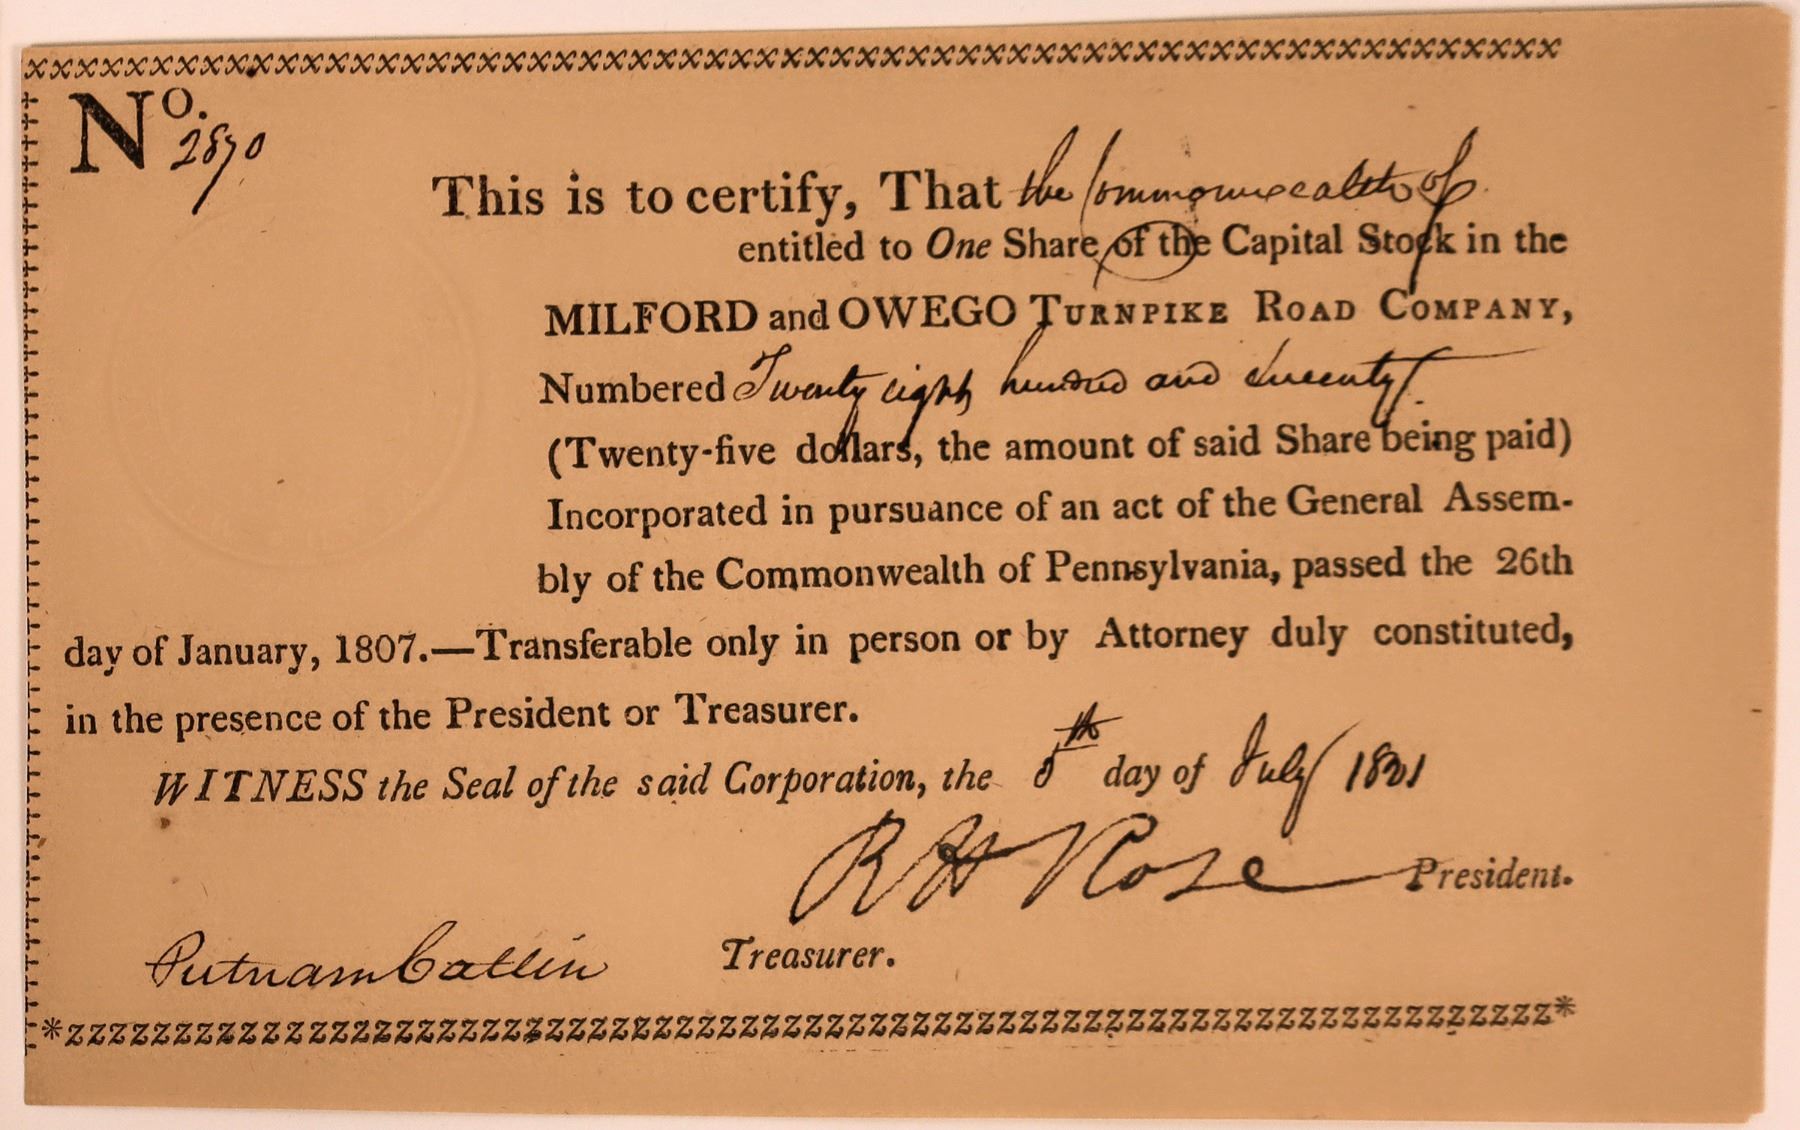 No.
2870
This is to certify, That the Commonwealth of
entitled to One Share of the Capital Stock in the
MILFORD and OWEGO TURNPIKE ROAD COMPANY,
Numbered Twenty eight hundred and seventy
(Twenty-five dollars, the amount of said Share being paid)
Incorporated in pursuance of an act of the General Assem-
bly of the Commonwealth of Pennsylvania, passed the 26th
day of January, 1807.—Transferable only in person or by Attorney duly constituted,
in the presence of the President or Treasurer.
WITNESS the Seal of the said Corporation, the 5th day of July 1821
R H Rose President.
Putnam Catlin Treasurer.